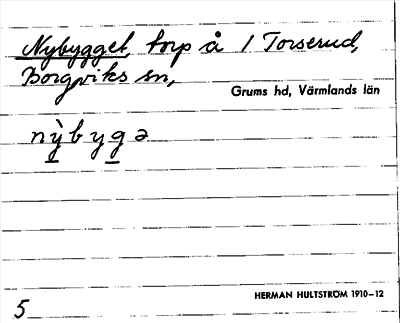 Nybygget, torp å 1 Torserud,
Borgviks sn,
Grums hd, Värmlands län
nỳbygə
HERMAN HULTSTRÖM 1910–12
5